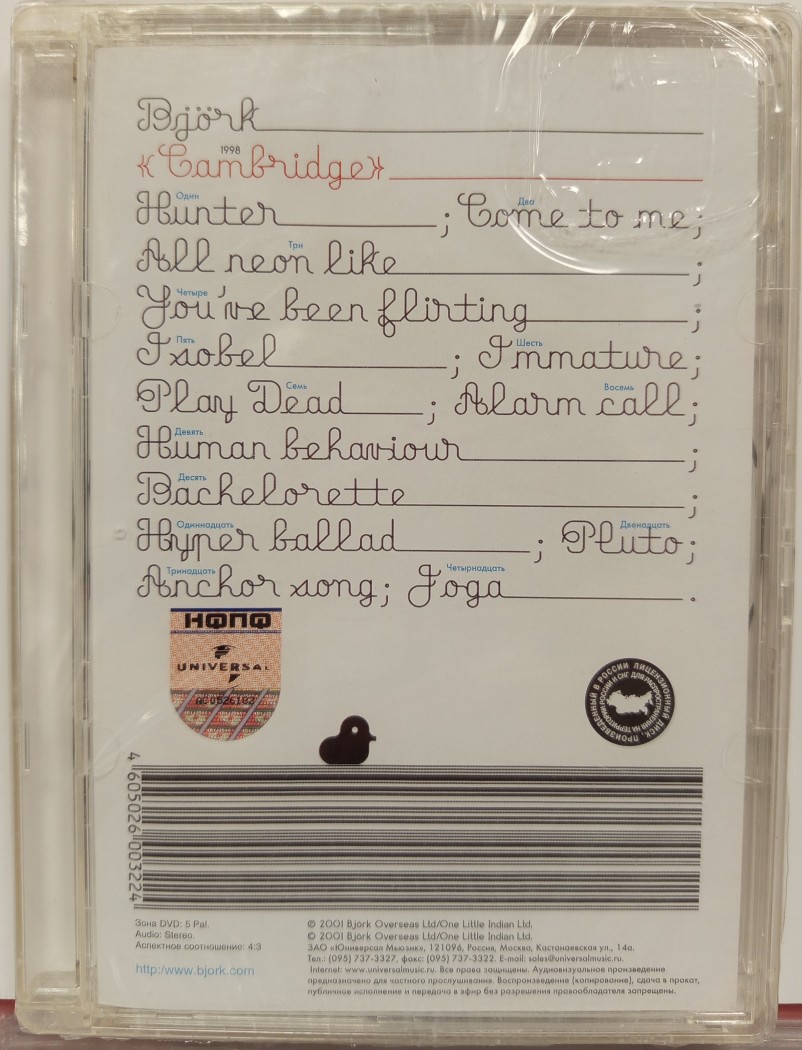 Björk
1998
«Cambridge»
Один Два
Hunter ; Come to me;
Три
All neon like ;
Четыре
You've been flirting ;
Пять Шесть
Isobel ; Immature;
Семь Восемь
Play Dead ; Alarm call;
Девять
Human behaviour ;
Десять
Bachelorette ;
Одиннадцать Двенадцать
Hyper ballad ; Pluto;
Тринадцать Четырнадцать
Anchor song; Joga .
НФПФ
UNIVERSAL
ПРОИЗВЕДЕННЫЙ В РОССИИ ЛИЦЕНЗИОННЫЙ ДИСК
ДЛЯ РАСПРОСТРАНЕНИЯ НА ТЕРРИТОРИИ РОССИИ И СНГ
4 605026 003224
Зона DVD: 5 Pal.
Audio: Stereo.
Аспектное соотношение: 4:3
http:/www.bjork.com
© 2001 Bjork Overseas Ltd/One Little Indian Ltd.
© 2001 Bjork Overseas Ltd/One Little Indian Ltd.
ЗАО «Юниверсал Мьюзик», 121096, Россия, Москва, Кастанаевская ул., 14а.
Тел.: (095) 737-3327, факс: (095) 737-3322. E-mail: sales@universalmusic.ru.
Internet: www.universalmusic.ru. Все права защищены. Аудиовизуальное произведение
предназначено для частного прослушивания. Воспроизведение (копирование), сдача в прокат,
публичное исполнение и передача в эфир без разрешения правообладателя запрещены.